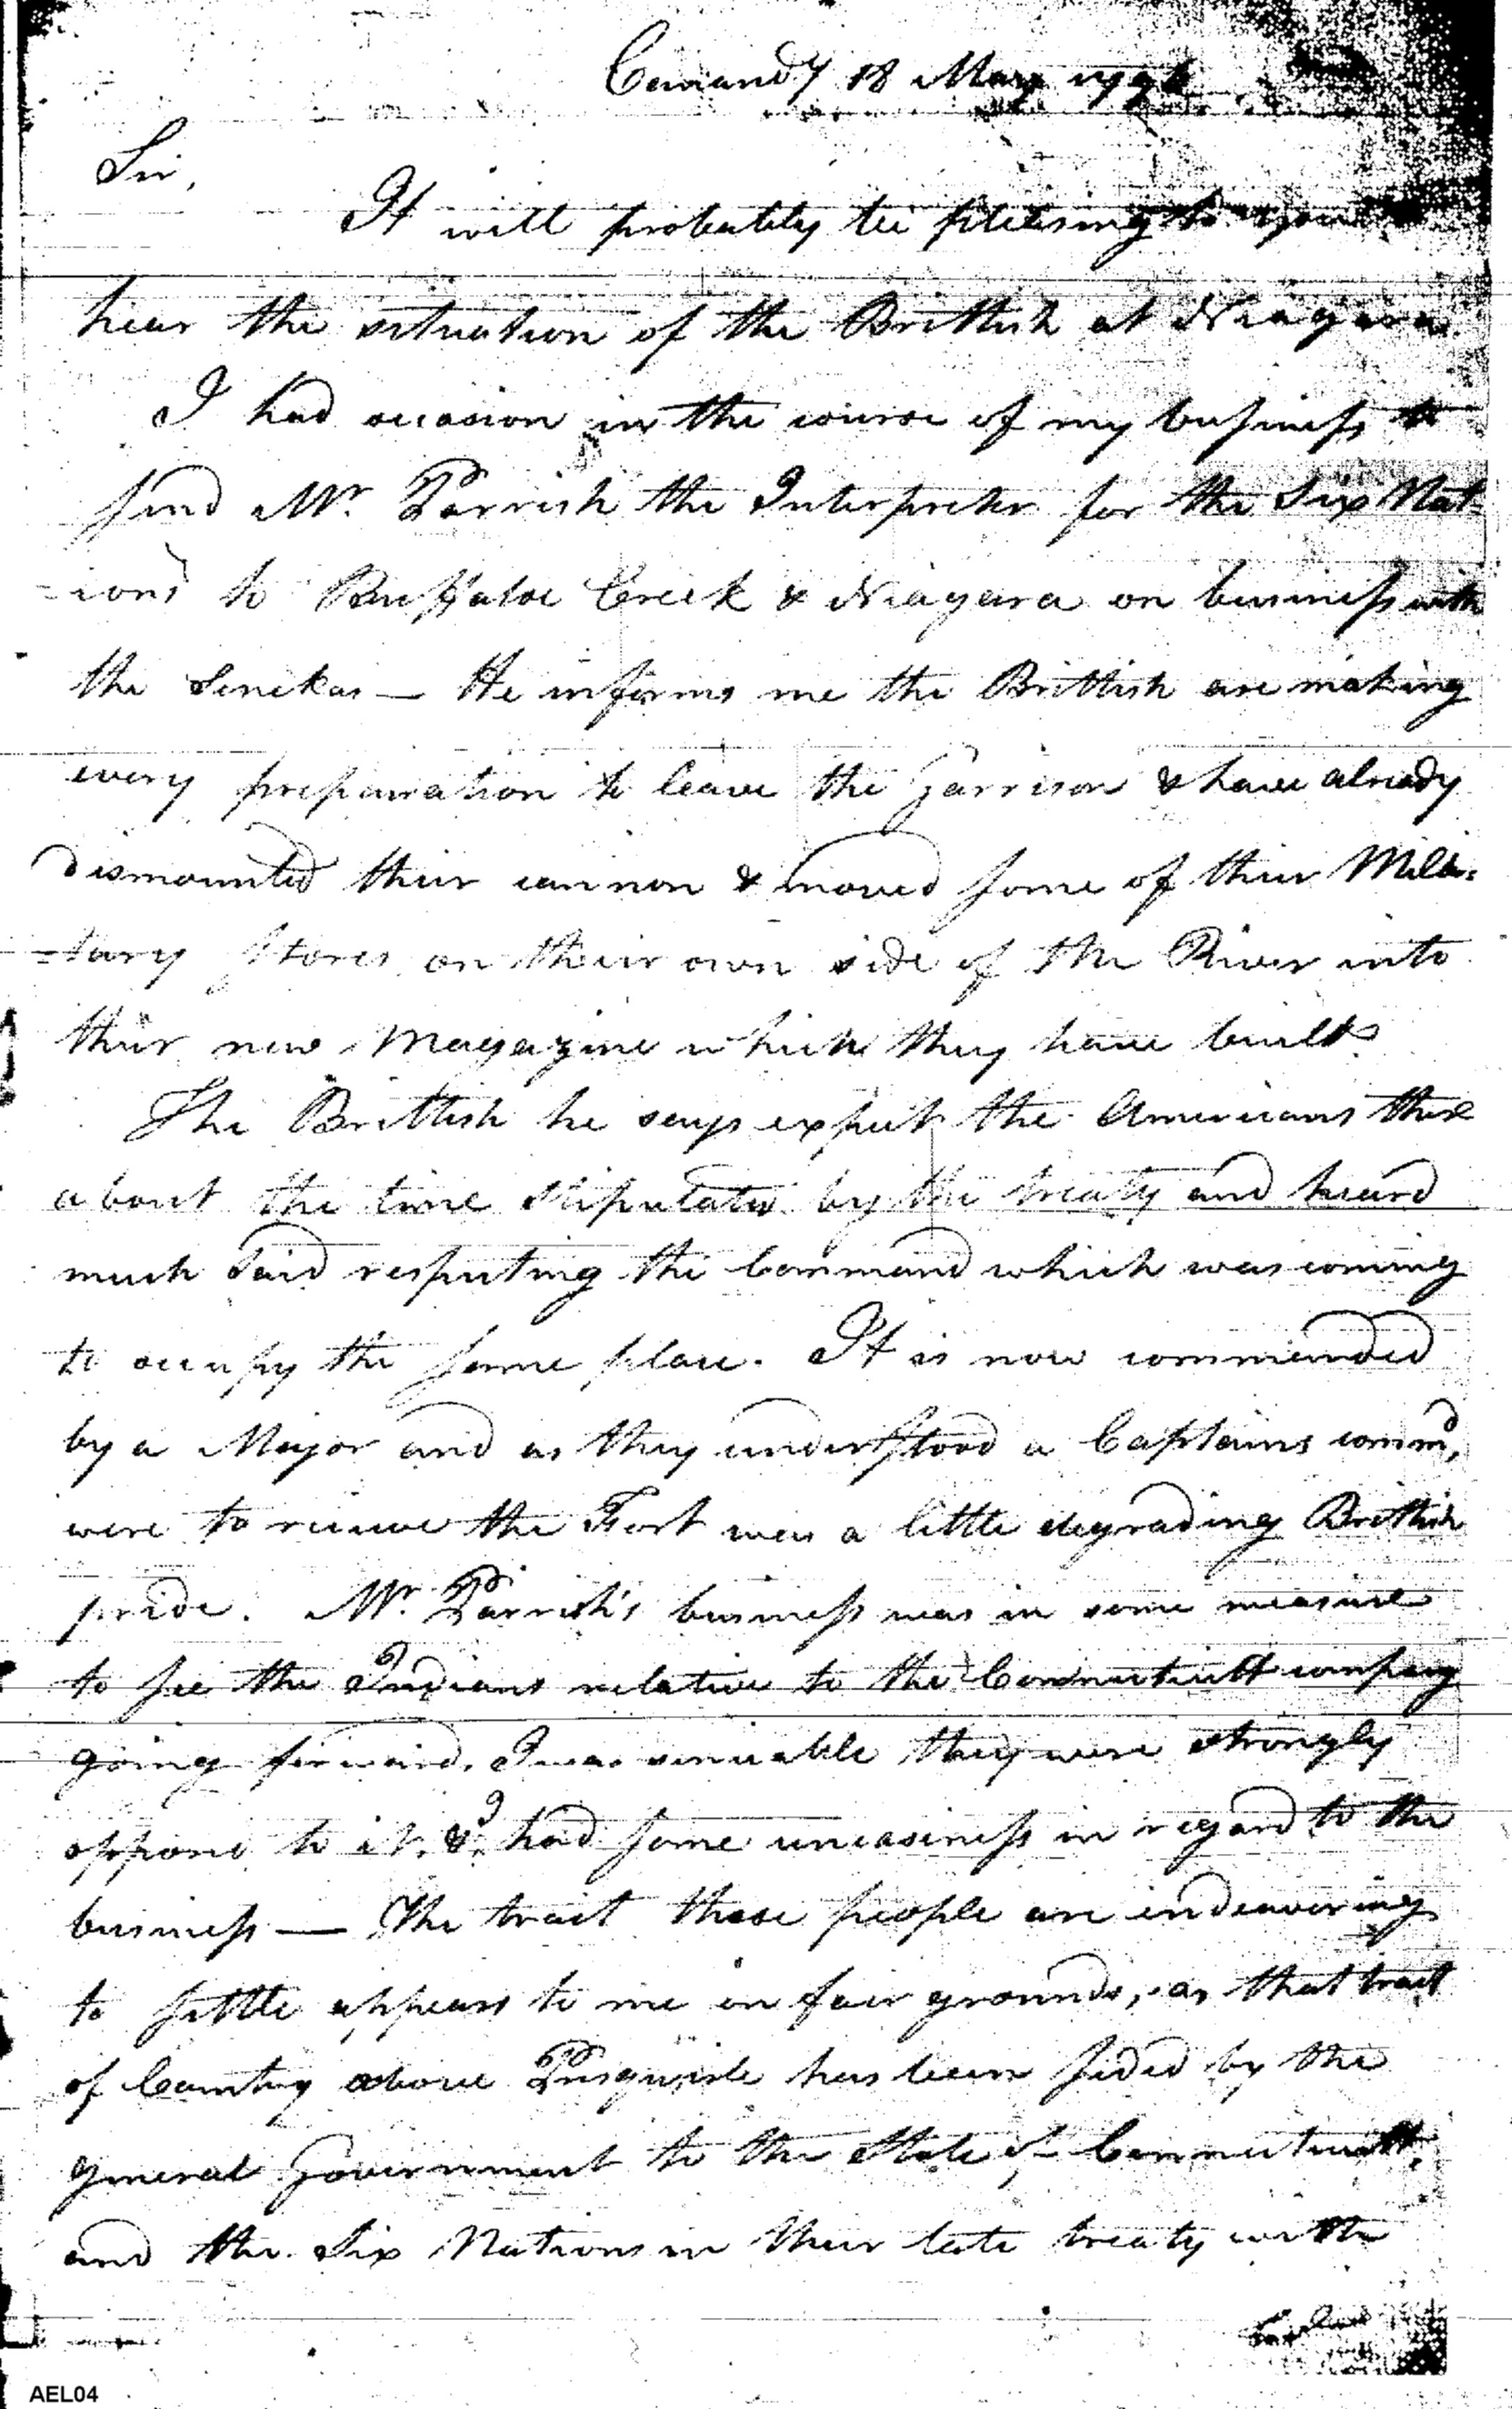 Canandy 18 May 1796
Sir,
It will probably be pleasing to you
hear the situation of the Brittish at Niagara.
I had occasion in the course of my business to
send Mr. Parrish the Interpreter for the Six Nat-
-ions to Buffaloe Creek & Niagara on business with
the Senekas — He informs me the Brittish are making
every preparation to leave the Garrison & have already
dismounted their cannon & moved some of their Mili-
-tary stores on their own side of the River into
their new Magazine which they have built
The Brittish he says expect the Americans there
about the time stipulated by the treaty and heard
much said respecting the Command which was coming
to occupy the same place. It is now commanded
by a Major and as they understood a Captains commd,
were to receive the Fort was a little degrading Brittish
pride. Mr. Parrish's business was in some measure
to see the Indians relative to the Connecticutt company
going forward. I was sensiable they were strongly
oppose to it. & had some uneasiness in regard to the
business — The tract those people are endeavoring
to settle appears to me on fair grounds, as that tract
of Country above Presquisle has been seded by the
general Government to the State of Connecticutt,
and the Six Nations in their late treaty with
AEL04